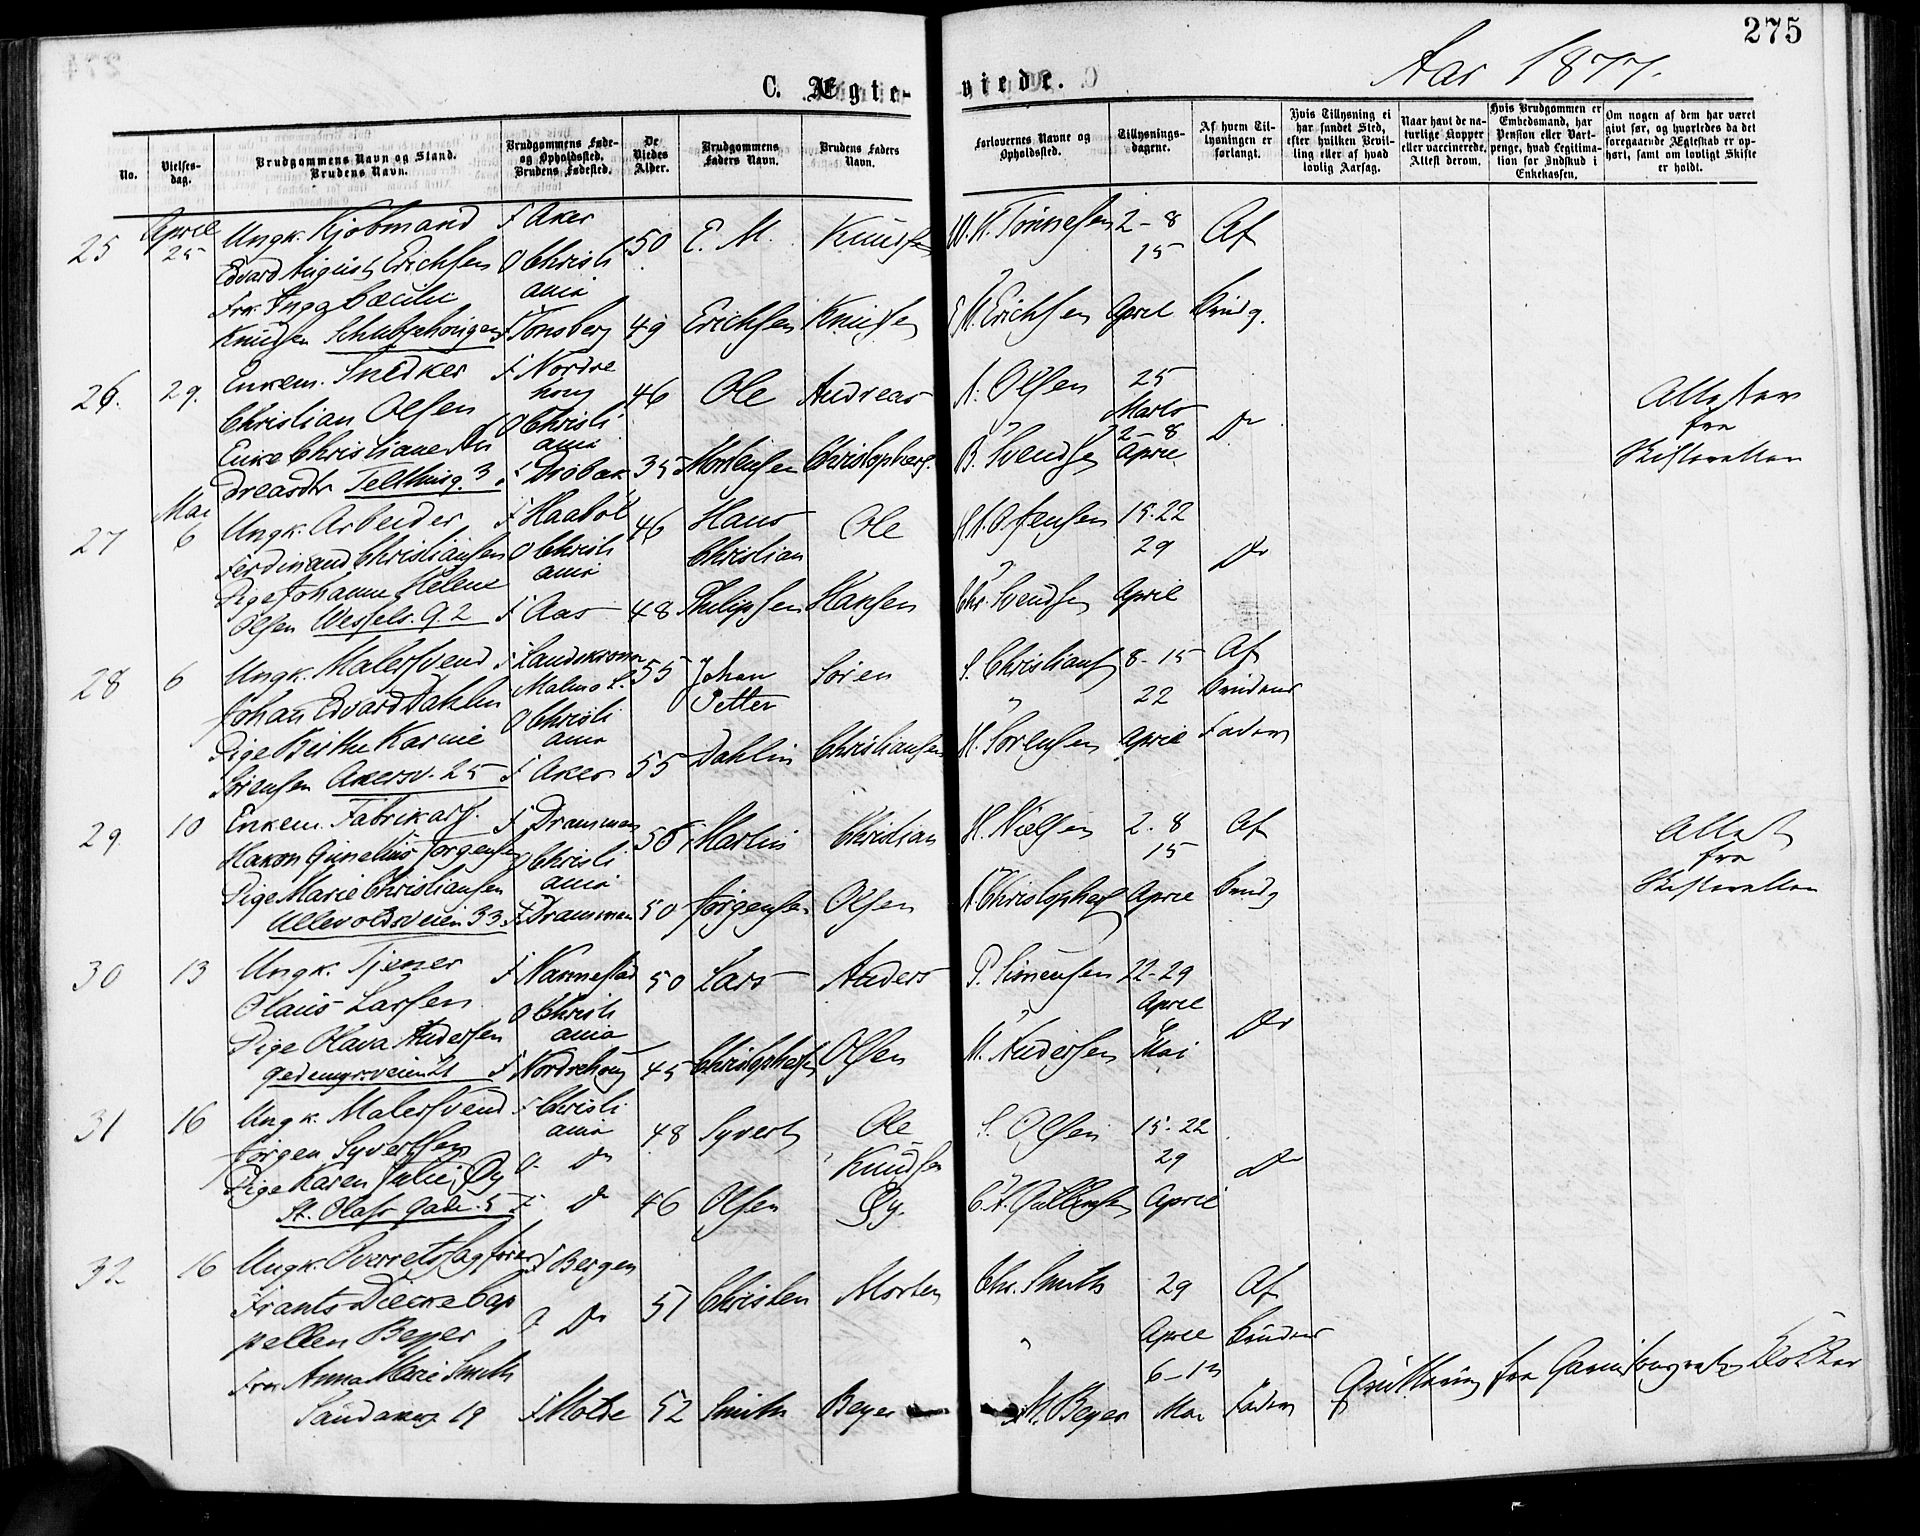 275
Aar 1877.
C. Ægte-
viede.
No.
Vielses-
dag.
Brudgommens Navn og Stand.
Brudens Navn.
Brudgommens Føde-
og Opholdssted.
Brudens Fødested.
De
Viedes
Alder.
Brudgommens
Faders Navn.
Brudens Faders
Navn.
Forlovernes Navne og
Opholdssted.
Tillysnings-
dagene.
Af hvem Til-
lysningen er
forlangt.
Hvis Tillysning ei
har fundet Sted,
efter hvilken Bevil-
ling eller af hvad
lovlig Aarsag.
Naar havt de na-
turlige Kopper
eller vaccinerede.
Attest derom.
Hvis Brudgommen er
Embedsmand, har
Pension eller Vart-
penge, hvad Legitima-
tion for Indskud i
Enkekassen.
Om nogen af dem har været
givt før, og hvorledes da det
foregaaende Ægteskab er op-
hørt, samt om lovligt Skifte
er holdt.
25 April 25 Ungk. Kjøbmand F Aker 50 E. M. Knudsen Tønnesen 2-8 Af
Edvard August Erichsen O Christi 15
Frk. Cæcilie ania
Knudsen F Tønsberg 49 Erichsen Knudsen Erichsen April Brudg.
26. 29. Enkem. Snedker F Nordre 46 Ole Andreas A. Olsen 25 Attester
Christian Olsen houg Marts fra
Enke Christiane An O Christi 2-8 Do Skifteretten
ania
dreasdtr Telthusg. 3 F Drøbak 35 Mortensen Christophers. B. Svendsen April
27 Mai 6 Ungk. Arbeider F Haabøl 46 Hans Ole 15-22
Ferdinand Christiansen O Christi Christian 29 Do
Pige Johanne Helene ania
Olsen Wessels. g. 2 F Aas 48 Philipsen Hansen Chr. Svendsen April
28 6 Ungk. Malersvend F Landskrona 55 Johan Søren S. Christians 8-15 Af
Johan Edvard Dahlin Malmø L. Petter 22 Brudens
Pige Birthe Karine O Christi
ania
Sørensen Akersv. 25 F Aker 55 Dahlin Christiansen H. Sørensen April Fader
29. 10 Enkem. Fabrikarb. F Drammen 56 Martin Christian H. Nielsen 2-8 Af Attest
Jørgensen O Christi 15 fra
Pige Marie Christiansen ania Skifteretten
Ullevoldsveien 33 F Drammen 50 Jørgensen Olsen Christophers April Brudg
30 13 Ungk. Tjener F Nannestad 50 Lars Anders P. Simensen 22-29
Olaus Larsen O Christi April
Pige Olava Andersen ania Do
F Nordrehoug 45 Christophersen Olsen M. Andersen Mai
31 16 Ungk. Malersvend F Christi 48 Syvert Ole S. Olsen 15-22
Jørgen Syvertsen ania Knudsen 29
Pige Karen Julie Øy O. Do Do
St. Olafs Gade. 5 F Do 46 Olsen Øy. April
32 16 Ungk. Overretssagfører F Bergen 51 Christen Morten Chr. Smith 29 Af
Frants Diecke Cap O. Do
pellen Beyer April Brudens
Frk. Anna Marie Smith 6-13
Sandakerv 19 F Molde 52 Smith Beyer M. Beyer Mai Fader